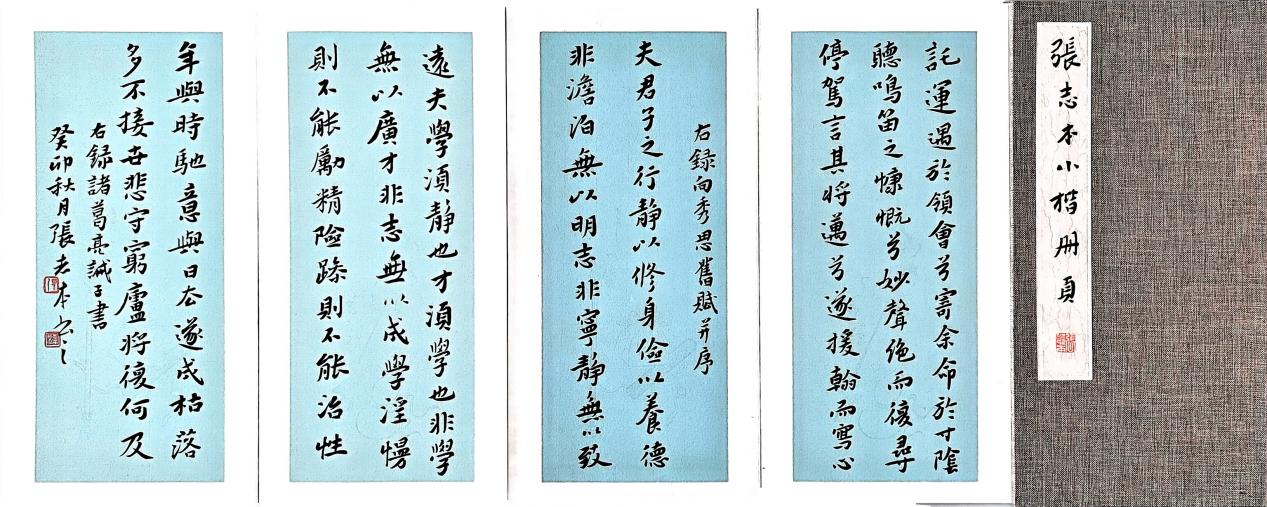 張志本小楷册頁
託運遇於領會兮寄余命於寸陰
聽鳴笛之慷慨兮妙聲絶而復尋
停駕言其將邁兮遂援翰而寫心
右録向秀思舊賦并序
夫君子之行靜以修身儉以養德
非澹泊無以明志非寧靜無以致
遠夫學須靜也才須學也非學
無以廣才非志無以成學淫慢
則不能勵精險躁則不能治性
年與時馳意與日去遂成枯落
多不接世悲守窮廬將復何及
右録諸葛亮誡子書
癸卯秋月張志本書之